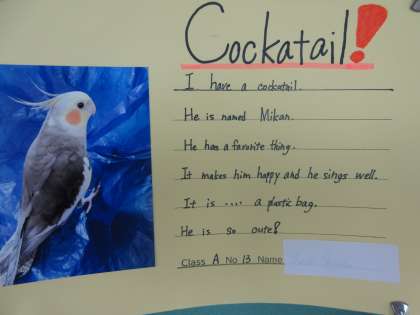 Cockatail!
I have a cockatail.
He is named Mikan.
He has a favorite thing.
It makes him happy and he sings well.
It is .... a plastic bag.
He is so cute!
Class A No 13 Name